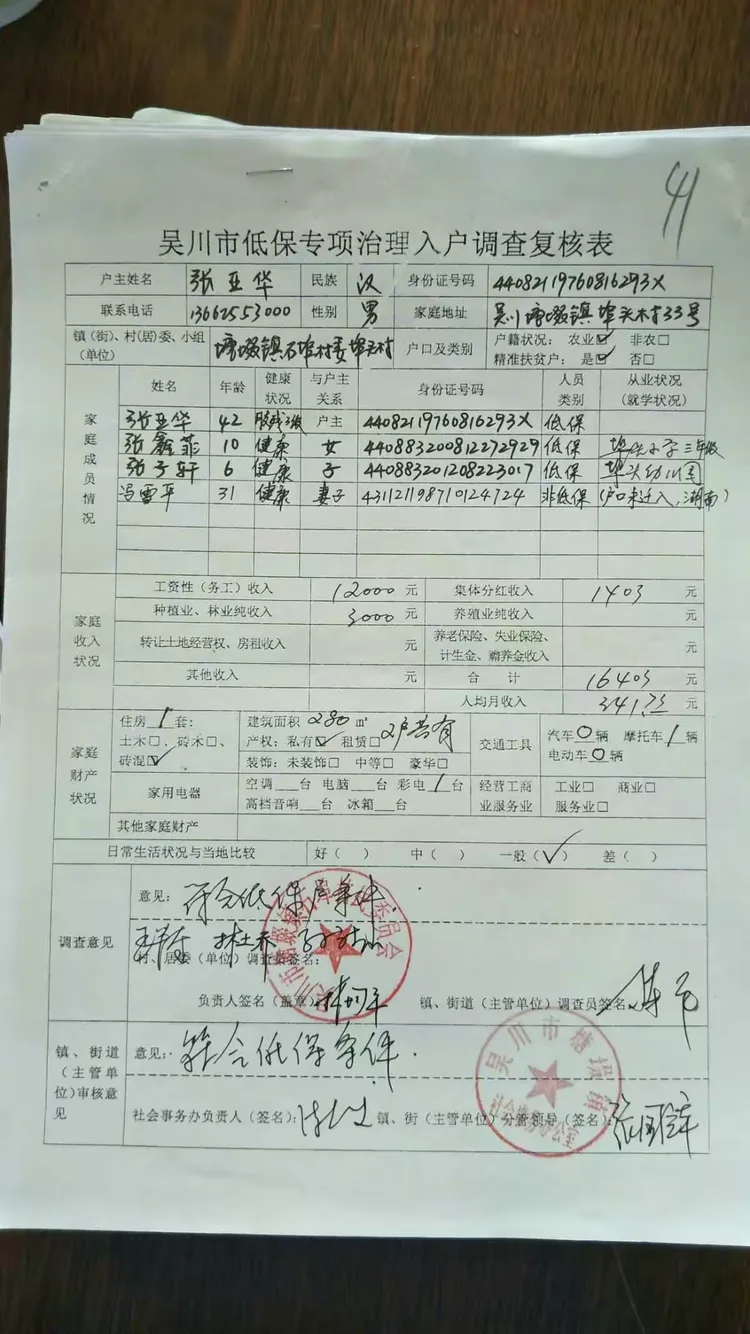 41
吴川市低保专项治理入户调查复核表
户主姓名 张亚华 民族 汉 身份证号码 44082119760816293X
联系电话 13662553000 性别 男 家庭地址 吴川塘㙍镇埠头村33号
镇(街)、村(居)委、小组(单位) 塘㙍镇石埠村委埠头村 户口及类别 户籍状况:农业☑ 非农□
精准扶贫户:是☑ 否□
家庭成员情况 姓名 年龄 健康状况 与户主关系 身份证号码 人员类别 从业状况(就学状况)
张亚华 42 肢残3级 户主 44082119760816293X 低保
张鑫菲 10 健康 女 440883200812272929 低保 埠头小学三年级
张子轩 6 健康 子 440883201208223017 低保 埠头幼儿园
冯雪平 31 健康 妻子 431121198710124724 非低保 (户口未迁入,湖南)
家庭收入状况 工资性(务工)收入 12000元 集体分红收入 1403 元
种植业、林业纯收入 3000元 养殖业纯收入 元
转让土地经营权、房租收入 元 养老保险、失业保险、计生金、赡养金收入 元
其他收入 元 合 计 16403 元
人均月收入 341.73 元
家庭财产状况 住房1套: 土木□、砖木□、砖混☑
建筑面积 280 ㎡
产权:私有☑ 租赁□ 2户共有
装饰:未装饰□ 中等□ 豪华□
交通工具 汽车0辆 摩托车1辆
电动车0辆
家用电器 空调___台 电脑___台 彩电1台
高档音响___台 冰箱___台
经营工商业服务业 工业□ 商业□
服务业□
其他家庭财产
日常生活状况与当地比较 好( ) 中( ) 一般(✓) 差( )
调查意见 意见:符合低保户条件.
村、居委(单位)调查员签名:
负责人签名(盖章) 镇、街道(主管单位)调查员签名:
镇、街道(主管单位)审核意见 意见:符合低保条件.
社会事务办负责人(签名): 镇、街(主管单位)分管领导(签名):
吴川市塘㙍镇
社会事务办公室